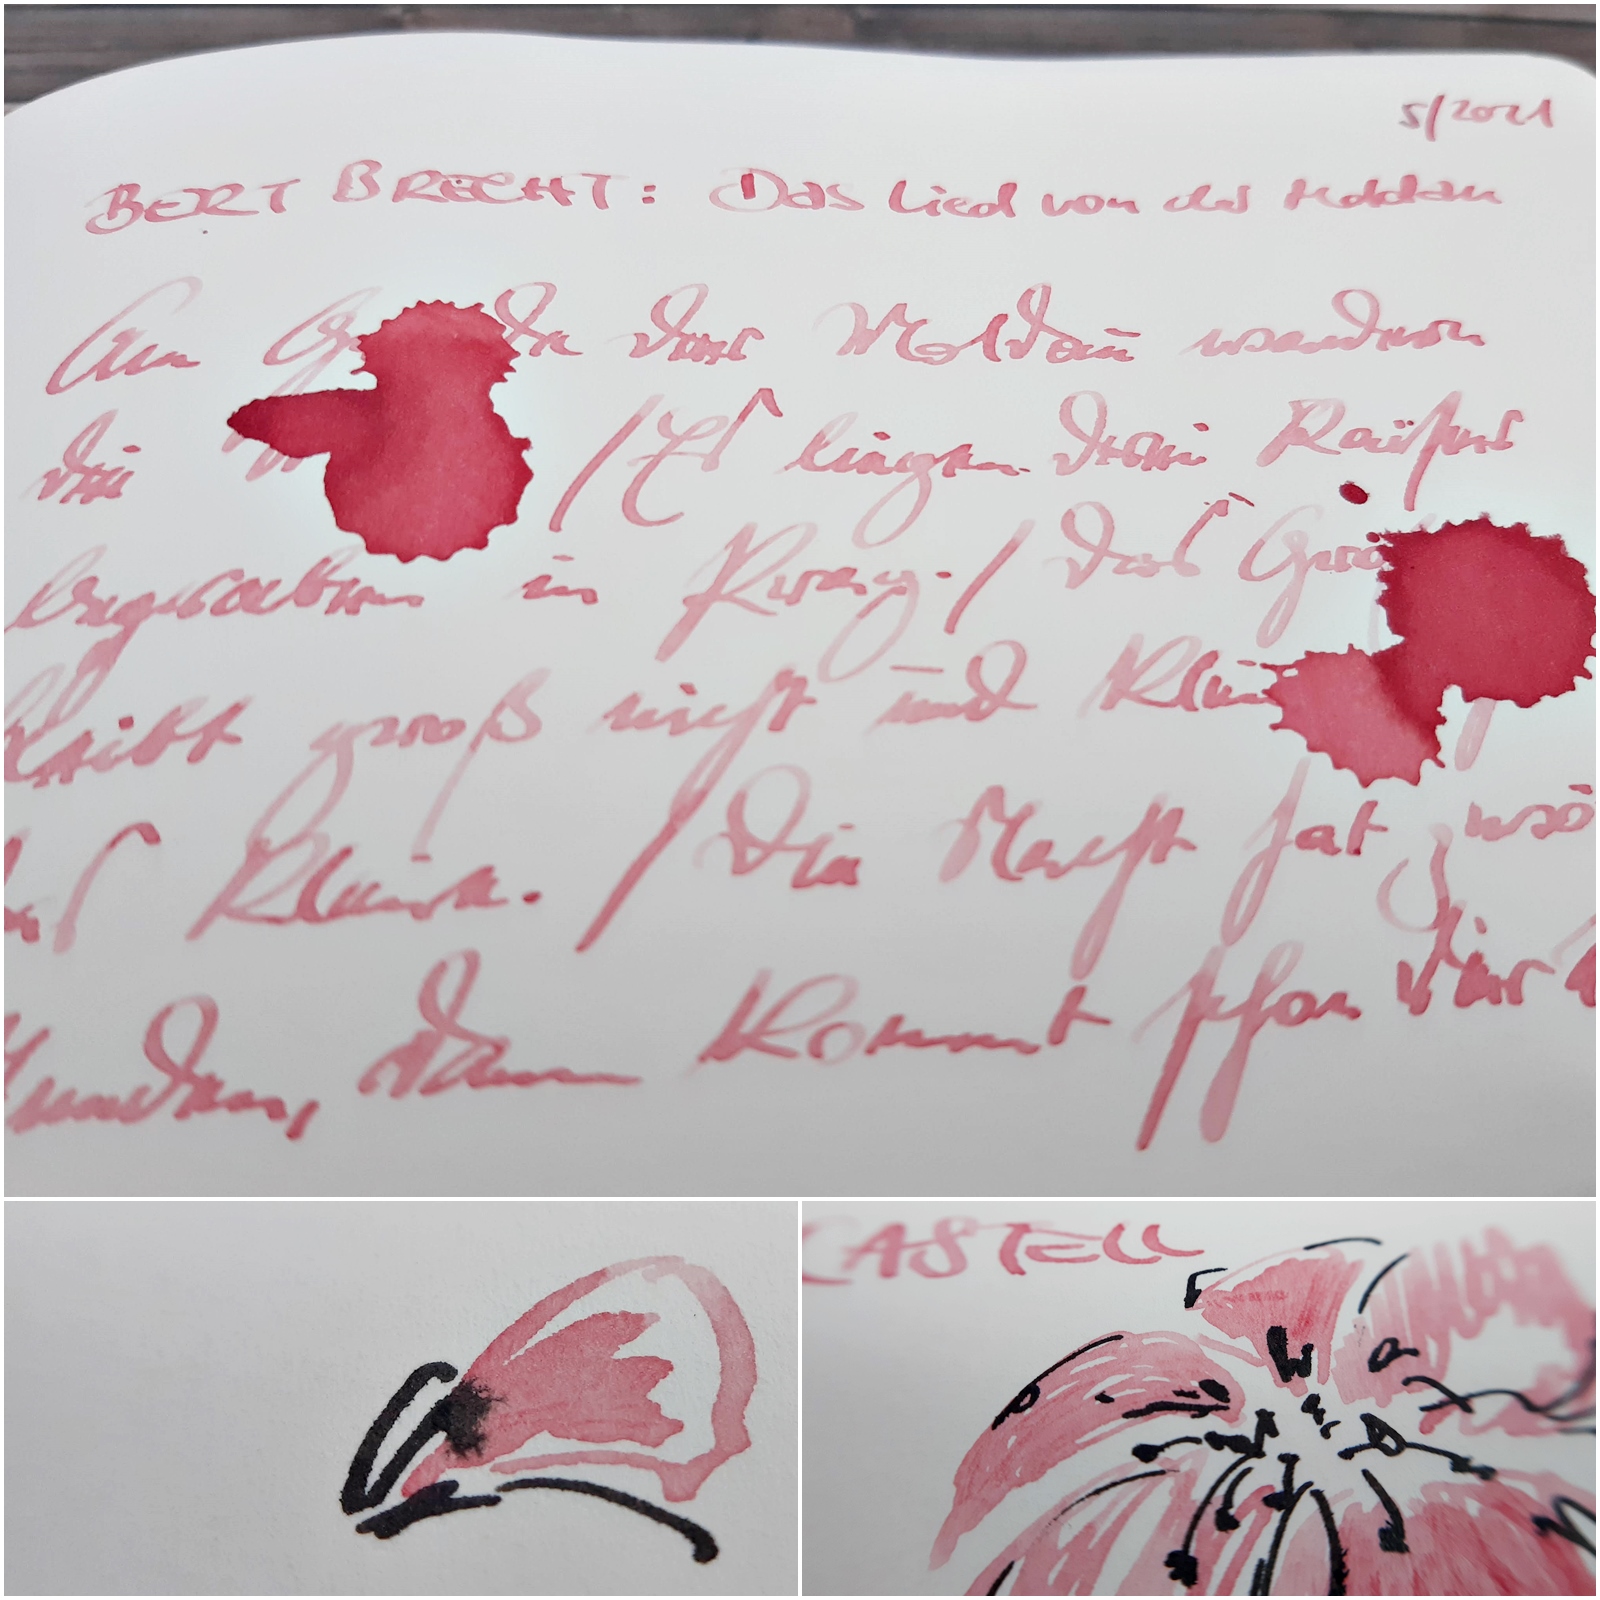 5/2021
BERT BRECHT: Das Lied von der Moldau
Am G de der Moldau wandern
die / Es liegen drei Kaiser
begraben in Prag. / Das Gro
bleibt groß nicht und klein
das Kleine. / Die Nacht hat zwö
Stunden, dann kommt schon der
CASTELL